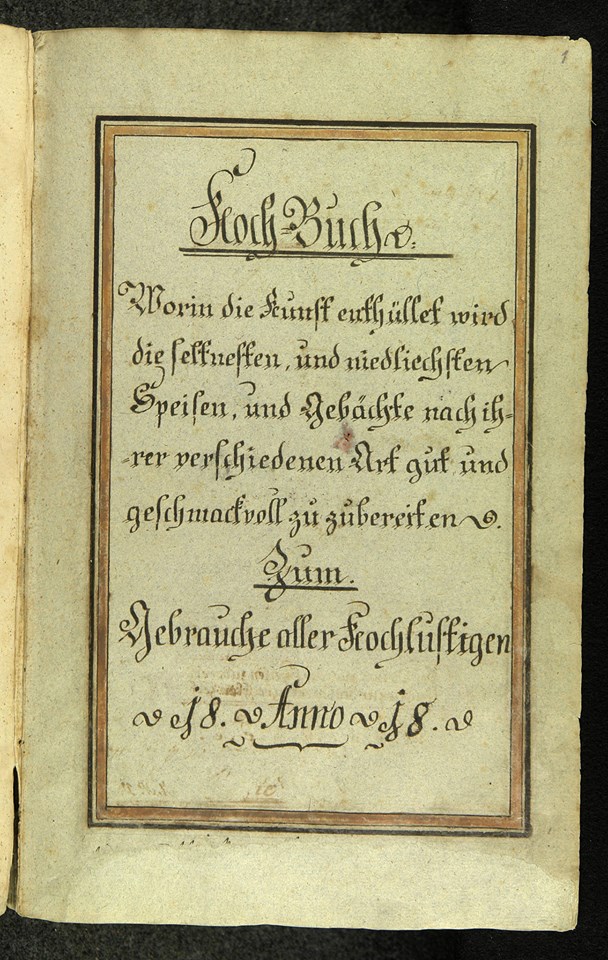 1
Koch-Buch
Worin die Kunst enthüllet wird
die seltnesten, und niedliechsten
Speisen, und Gebächte nach ih-
-rer verschiedenen Art gut und
geschmackvoll zu zubereiten
Zum.
Gebrauche aller Kochlustigen
18. Anno 18.